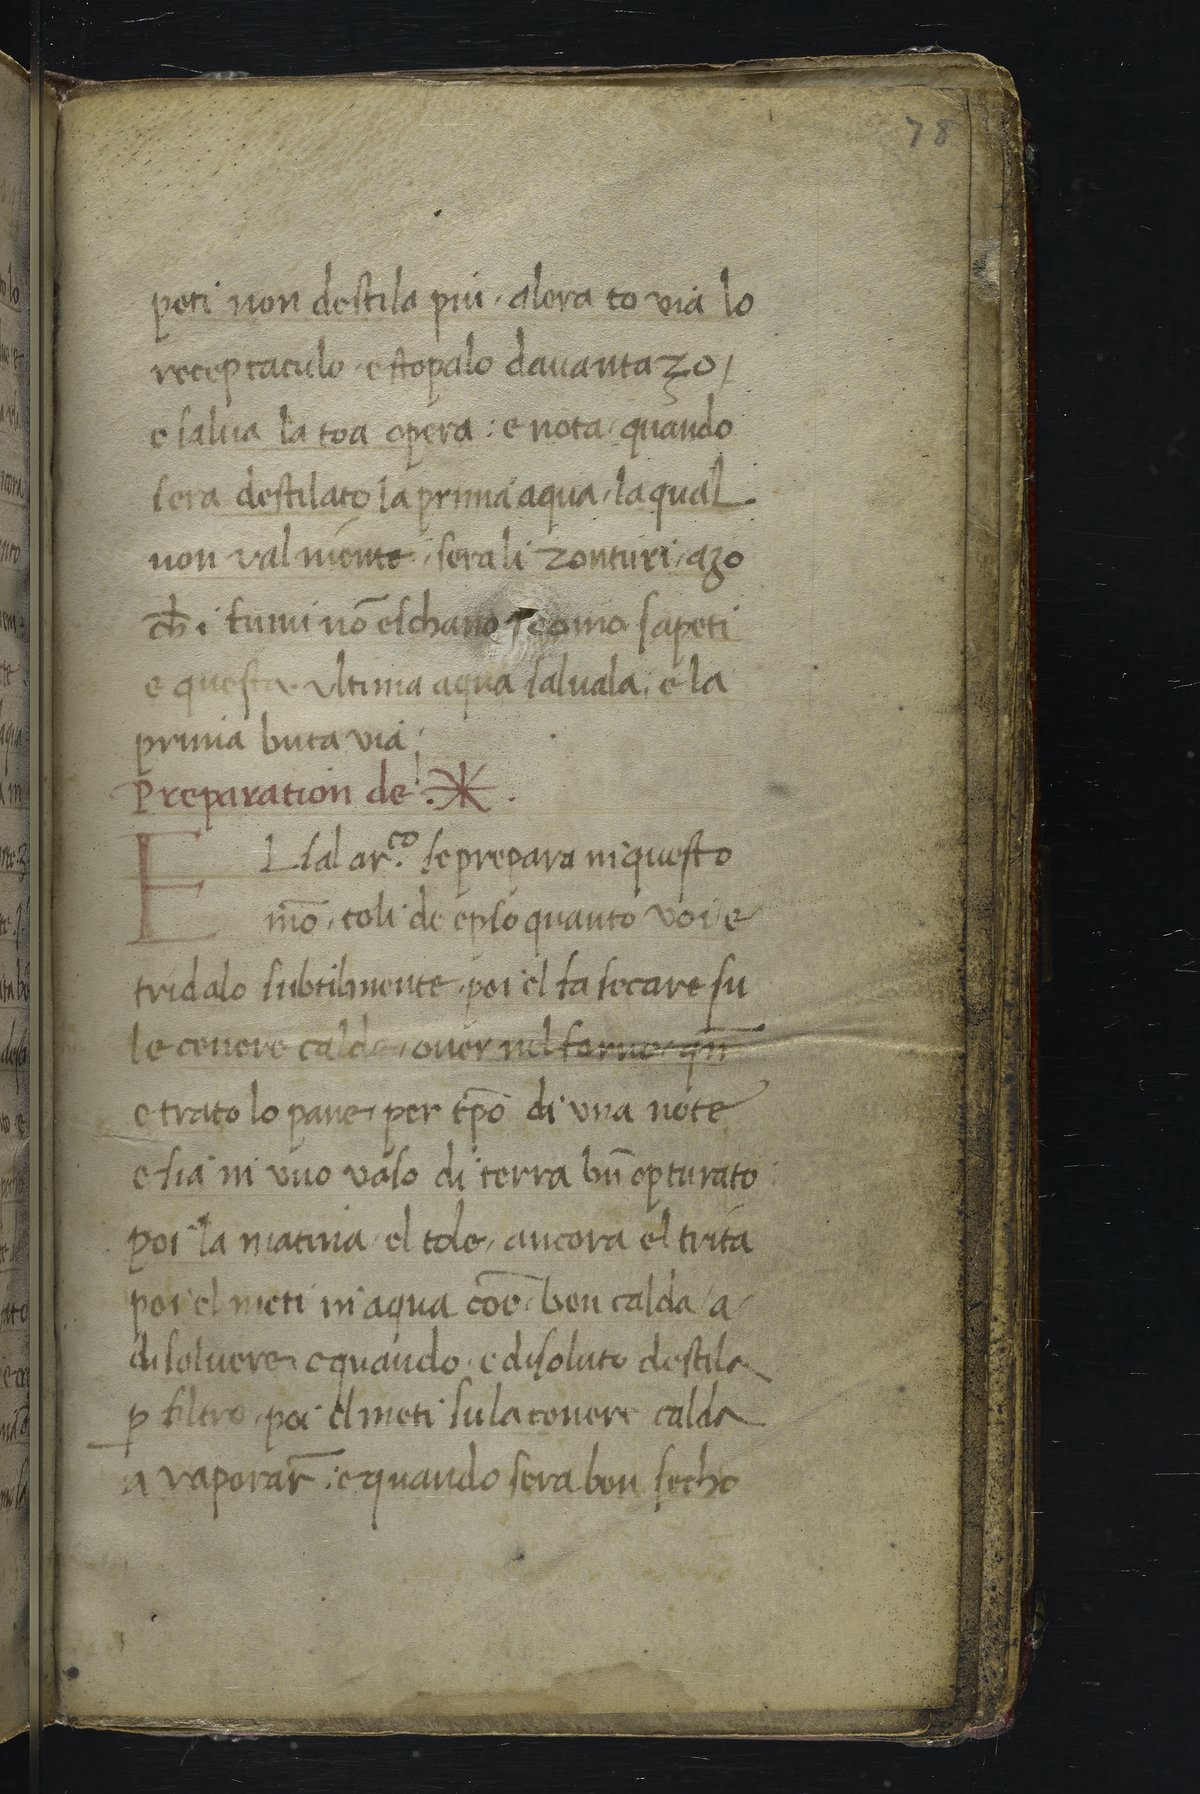 78
peti non destila piu, alora to via lo
receptaculo, e stopalo davantazo,
e salva la toa opera : e nota, quando
sera destilato la prima aqua, la qual
non val niente, sera li zonturi, azo
ch̄ i fumi nō eschano, como sapeti
e questa ultima aqua salvala, e la
prima buta via ;
Preparation de .
EL sal ar.co se prepara in questo
mō, toli de epso quanto voi, e
tridalo subtilmente, poi el fa secare su
le cenere calde, over nel forno, qn̄
e trato lo pane, per tp̄o di una note
e sia in uno vaso di terra bn̄ opturato
poi la matina, el tole, ancora el trita
poi el meti in aqua cōe, ben calda, a
disolvere, e quando, e disoluto destila
p filtro, poi el meti su la cenere calda
a vaporar̄ : e quando sera ben secho